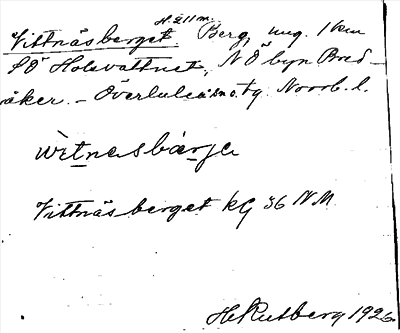 H. 211 m.
Vittnäsberget. Berg, ung. 1 km
SÖ Holsvattnet, NÖ byn Bred-
åker. – Överluleå sn o. tg. Norrb. l.
witnasbärje
Vittnäsberget kG 36 NM
H Rutberg 1926.